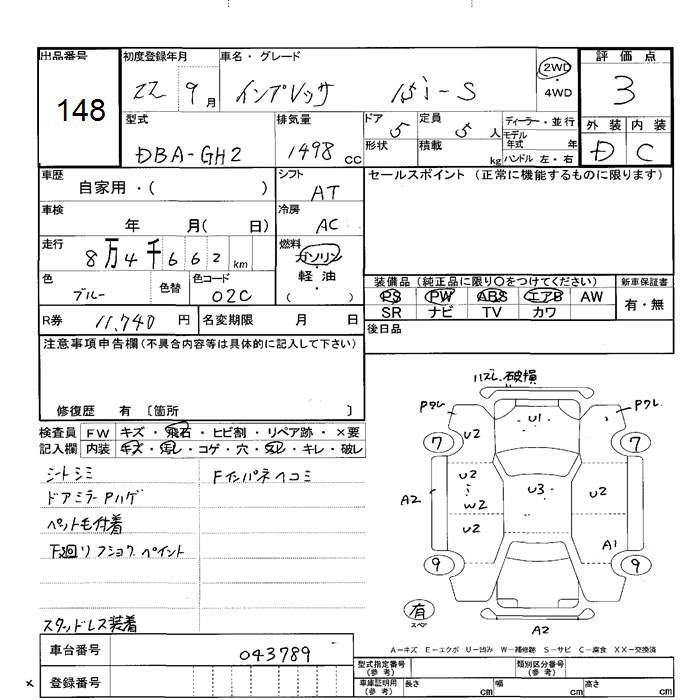 出品番号
148
初度登録年月
22 9月
車名・グレード
インプレッサ 15i-S
2WD
4WD
評価点
3
外装 内装
D C
型式
DBA-GH2
排気量
1498 cc
ドア
5
定員
5 人
形状
積載
kg
ディーラー・並行
モデル
年式 年
ハンドル 左・右
車歴
自家用・( )
シフト
AT
セールスポイント (正常に機能するものに限ります)
車検
年 月( 日)
冷房
AC
走行
8万4千662 km
燃料
ガソリン
・
軽油
( )
色
ブルー
色替
色コード
02C
装備品 (純正品に限り○をつけてください)
PS PW ABS エアB AW
SR ナビ TV カワ
新車保証書
有・無
R券 11,740 円
名変期限 月 日
後日品
注意事項申告欄(不具合内容等は具体的に記入して下さい)
修復歴 有 〔箇所 〕
検査員
記入欄
FW キズ・飛石・ヒビ割・リペア跡・×要
内装 キズ・汚レ・コゲ・穴・スレ・キレ・破レ
シートシミ
ドアミラーPハゲ
ペット毛付着
下廻リフショクペイント
スタッドレス装着
Fインパネヘコミ
ハズレ、破損
Pワレ
Pワレ
U1
U2
7
7
U2
W2
U2
U3
U2
A2
A1
9
9
有
スペア
A2
A-キズ E-エクボ U-凹み W-補修跡 S-サビ C-腐食 XX-交換済
車台番号
043789
登録番号
×
型式指定番号
(参考)
類別区分番号
(参考)
車庫証明用
(参考)
長さ cm
幅 cm
高さ cm